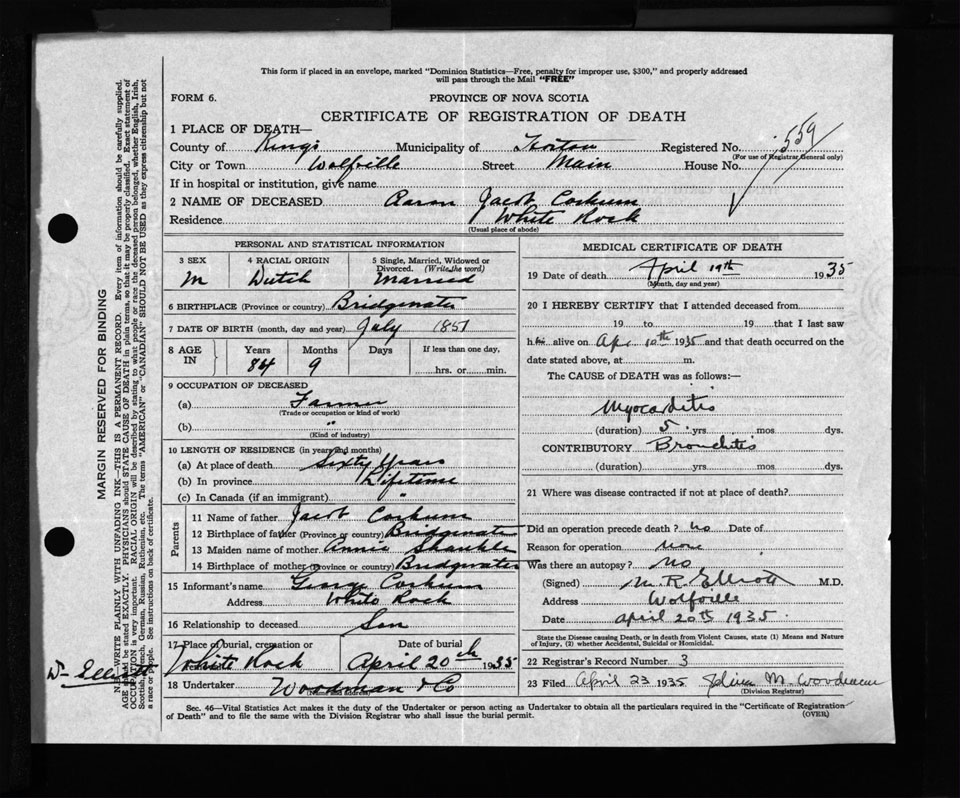 This form if placed in an envelope, marked "Dominion Statistics—Free, penalty for improper use, $300," and properly addressed
will pass through the Mail "FREE"
FORM 6.
PROVINCE OF NOVA SCOTIA
CERTIFICATE OF REGISTRATION OF DEATH
559
1 PLACE OF DEATH—
County of Kings Municipality of Horton Registered No.
(For use of Registrar General only)
City or Town Wolfville Street Main House No.
If in hospital or institution, give name
2 NAME OF DECEASED Aaron Jacob Corkum
Residence White Rock
(Usual place of abode)
PERSONAL AND STATISTICAL INFORMATION
3 SEX 4 RACIAL ORIGIN 5 Single, Married, Widowed or
Divorced. (Write the word)
M Dutch Married
6 BIRTHPLACE (Province or country) Bridgewater
7 DATE OF BIRTH (month, day and year) July 1851
8 AGE IN Years Months Days If less than one day,
84 9 hrs. or min.
9 OCCUPATION OF DECEASED
(a) Farmer
(Trade or occupation or kind of work)
(b) "
(Kind of industry)
10 LENGTH OF RESIDENCE (in years and months)
(a) At place of death Sixty years
(b) In province Lifetime
(c) In Canada (if an immigrant) "
Parents
11 Name of father Jacob Corkum
12 Birthplace of father (Province or country) Bridgewater
13 Maiden name of mother Annie Shankle
14 Birthplace of mother (Province or country) Bridgwater
15 Informant's name George Corkum
Address White Rock
16 Relationship to deceased Son
17 Place of burial, cremation or Date of burial
White Rock April 20th 1935
18 Undertaker Woodman & Co
MEDICAL CERTIFICATE OF DEATH
19 Date of death April 19th 1935
(Month, day and year)
20 I HEREBY CERTIFY that I attended deceased from
19 to 19 that I last saw
him alive on Apr 10th 1935 and that death occurred on the
date stated above, at m.
The CAUSE of DEATH was as follows:—
Myocarditis
(duration) 5 yrs. mos. dys.
CONTRIBUTORY Bronchitis
(duration) yrs. mos. dys.
21 Where was disease contracted if not at place of death?
Did an operation precede death? No Date of
Reason for operation None
Was there an autopsy? No
(Signed) M. R. Elliott M.D.
Address Wolfville
Date April 20th 1935
State the Disease causing Death, or in death from Violent Causes, state (1) Means and Nature
of Injury, (2) whether Accidental, Suicidal or Homicidal.
22 Registrar's Record Number 3
23 Filed April 23 1935 M. Woodman
(Division Registrar)
Sec. 46—Vital Statistics Act makes it the duty of the Undertaker or person acting as Undertaker to obtain all the particulars required in the "Certificate of Registration
of Death" and to file the same with the Division Registrar who shall issue the burial permit. (OVER)
MARGIN RESERVED FOR BINDING
N.B. WRITE PLAINLY WITH UNFADING INK—THIS IS A PERMANENT RECORD. Every item of information should be carefully supplied.
AGE should be stated EXACTLY. PHYSICIANS should STATE CAUSE OF DEATH in plain terms, so that it may be properly classified. Exact statement of
OCCUPATION is very important. RACIAL ORIGIN will be described by stating to what people or race the deceased person belonged, whether English, Irish,
Scottish, French, German, Russian, Ruthenian, etc. The terms "AMERICAN" or "CANADIAN" SHOULD NOT BE USED as they express citizenship but not
a race or people. See instructions on back of certificate.
Elliott